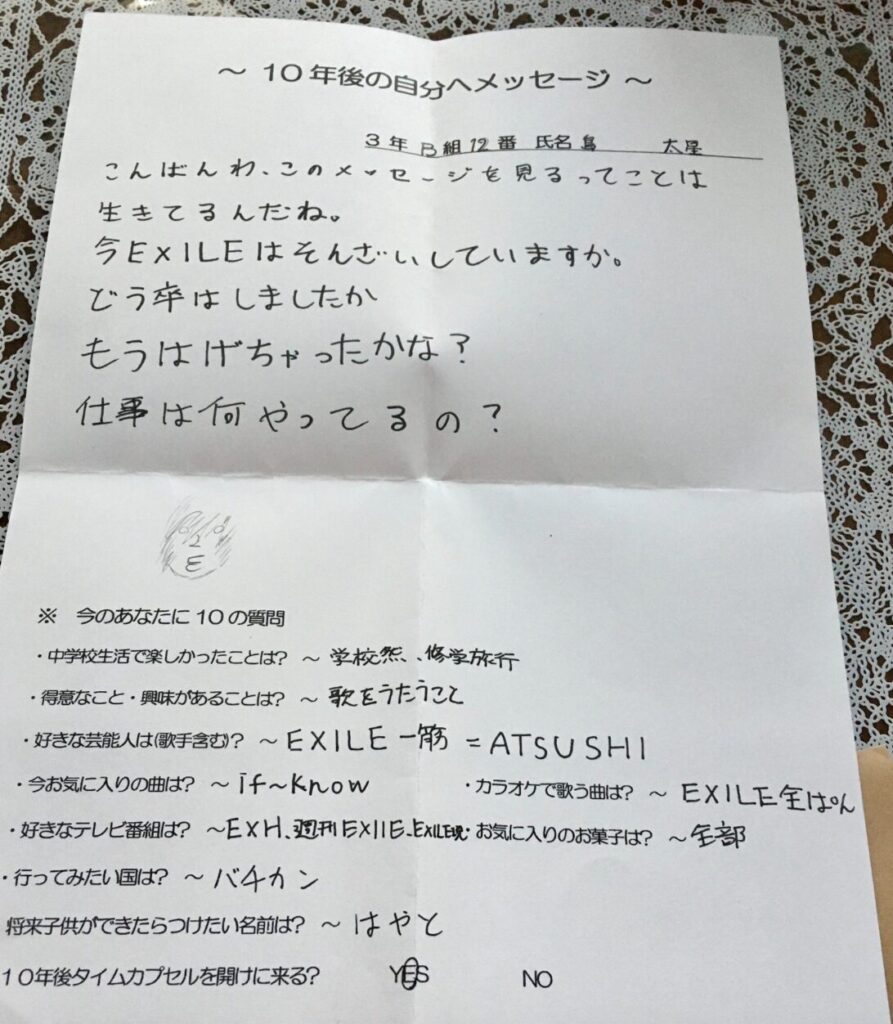 ～ 10年後の自分へメッセージ ～
3年 B組 12番 氏名 島 大屋
こんばんわ、このメッセージを見るってことは
生きてるんだね。
今EXILEはそんざいしていますか。
どう卒はしましたか
もうはげちゃったかな?
仕事は何やってるの?
※ 今のあなたに10の質問
・中学校生活で楽しかったことは? ～ 学校祭、修学旅行
・得意なこと・興味があることは? ～ 歌をうたうこと
・好きな芸能人は(歌手含む)? ～ EXILE一筋 = ATSUSHI
・今お気に入りの曲は? ～ if～know ・カラオケで歌う曲は? ～ EXILE全ぱん
・好きなテレビ番組は? ～EXH、週刊EXIIE、EXILE魂・お気に入りのお菓子は? ～全部
・行ってみたい国は? ～ バチカン
将来子供ができたらつけたい名前は? ～ はやと
10年後タイムカプセルを開けに来る? YES NO